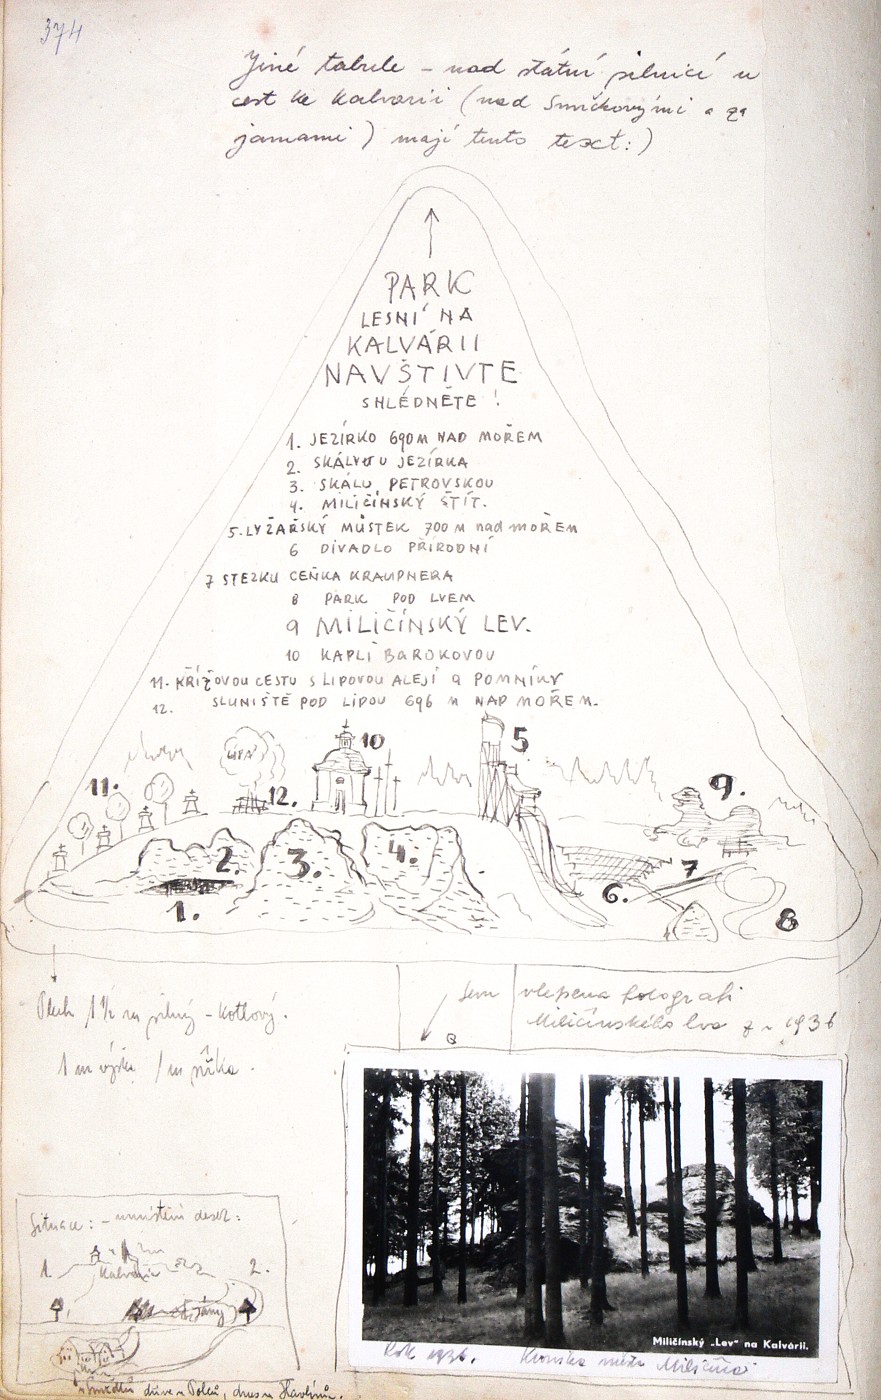 374
Jiné tabule – nad státní silnicí u
cest ke Kalvarii (nad Smičkovými a
jamami) mají tento text:)
PARK
LESNÍ NA
KALVÁRII
NAVŠTIVTE
SHLÉDNĚTE!
1. JEZÍRKO 690 M NAD MOŘEM
2. SKÁLU U JEZÍRKA
3. SKÁLU PETROVSKOU
4. MILIČÍNSKÝ ŠTÍT.
5. LYŽAŘSKÝ MŮSTEK 700 M nad MOŘEM
6 DIVADLO PŘÍRODNÍ
7 STEZKU CEŇKA KRAUPNERA
8 PARK POD LVEM
9 MILIČÍNSKÝ LEV.
10 KAPLI BAROKOVOU
11. KŘÍŽOVOU CESTU S LIPOVOU ALEJÍ a POMNÍKY
12. SLUNIŠTĚ POD LÍPOU 696 M NAD MOŘEM.
LÍPA
10
5
11.
12.
9.
2.
3.
4.
1.
6.
7
8
Plech 1½ m silný – kotlový.
1 m výška 1 m šířka.
Sem vlepena fotografi
Miličínského lva z r. 1936
Situace: – umístění desek:
1.
Kalvarie
2.
Miličínský „Lev" na Kalvárii.
Rok 1936. Kronika města Miličína
dříve u Polků, dnes u Havlínů.